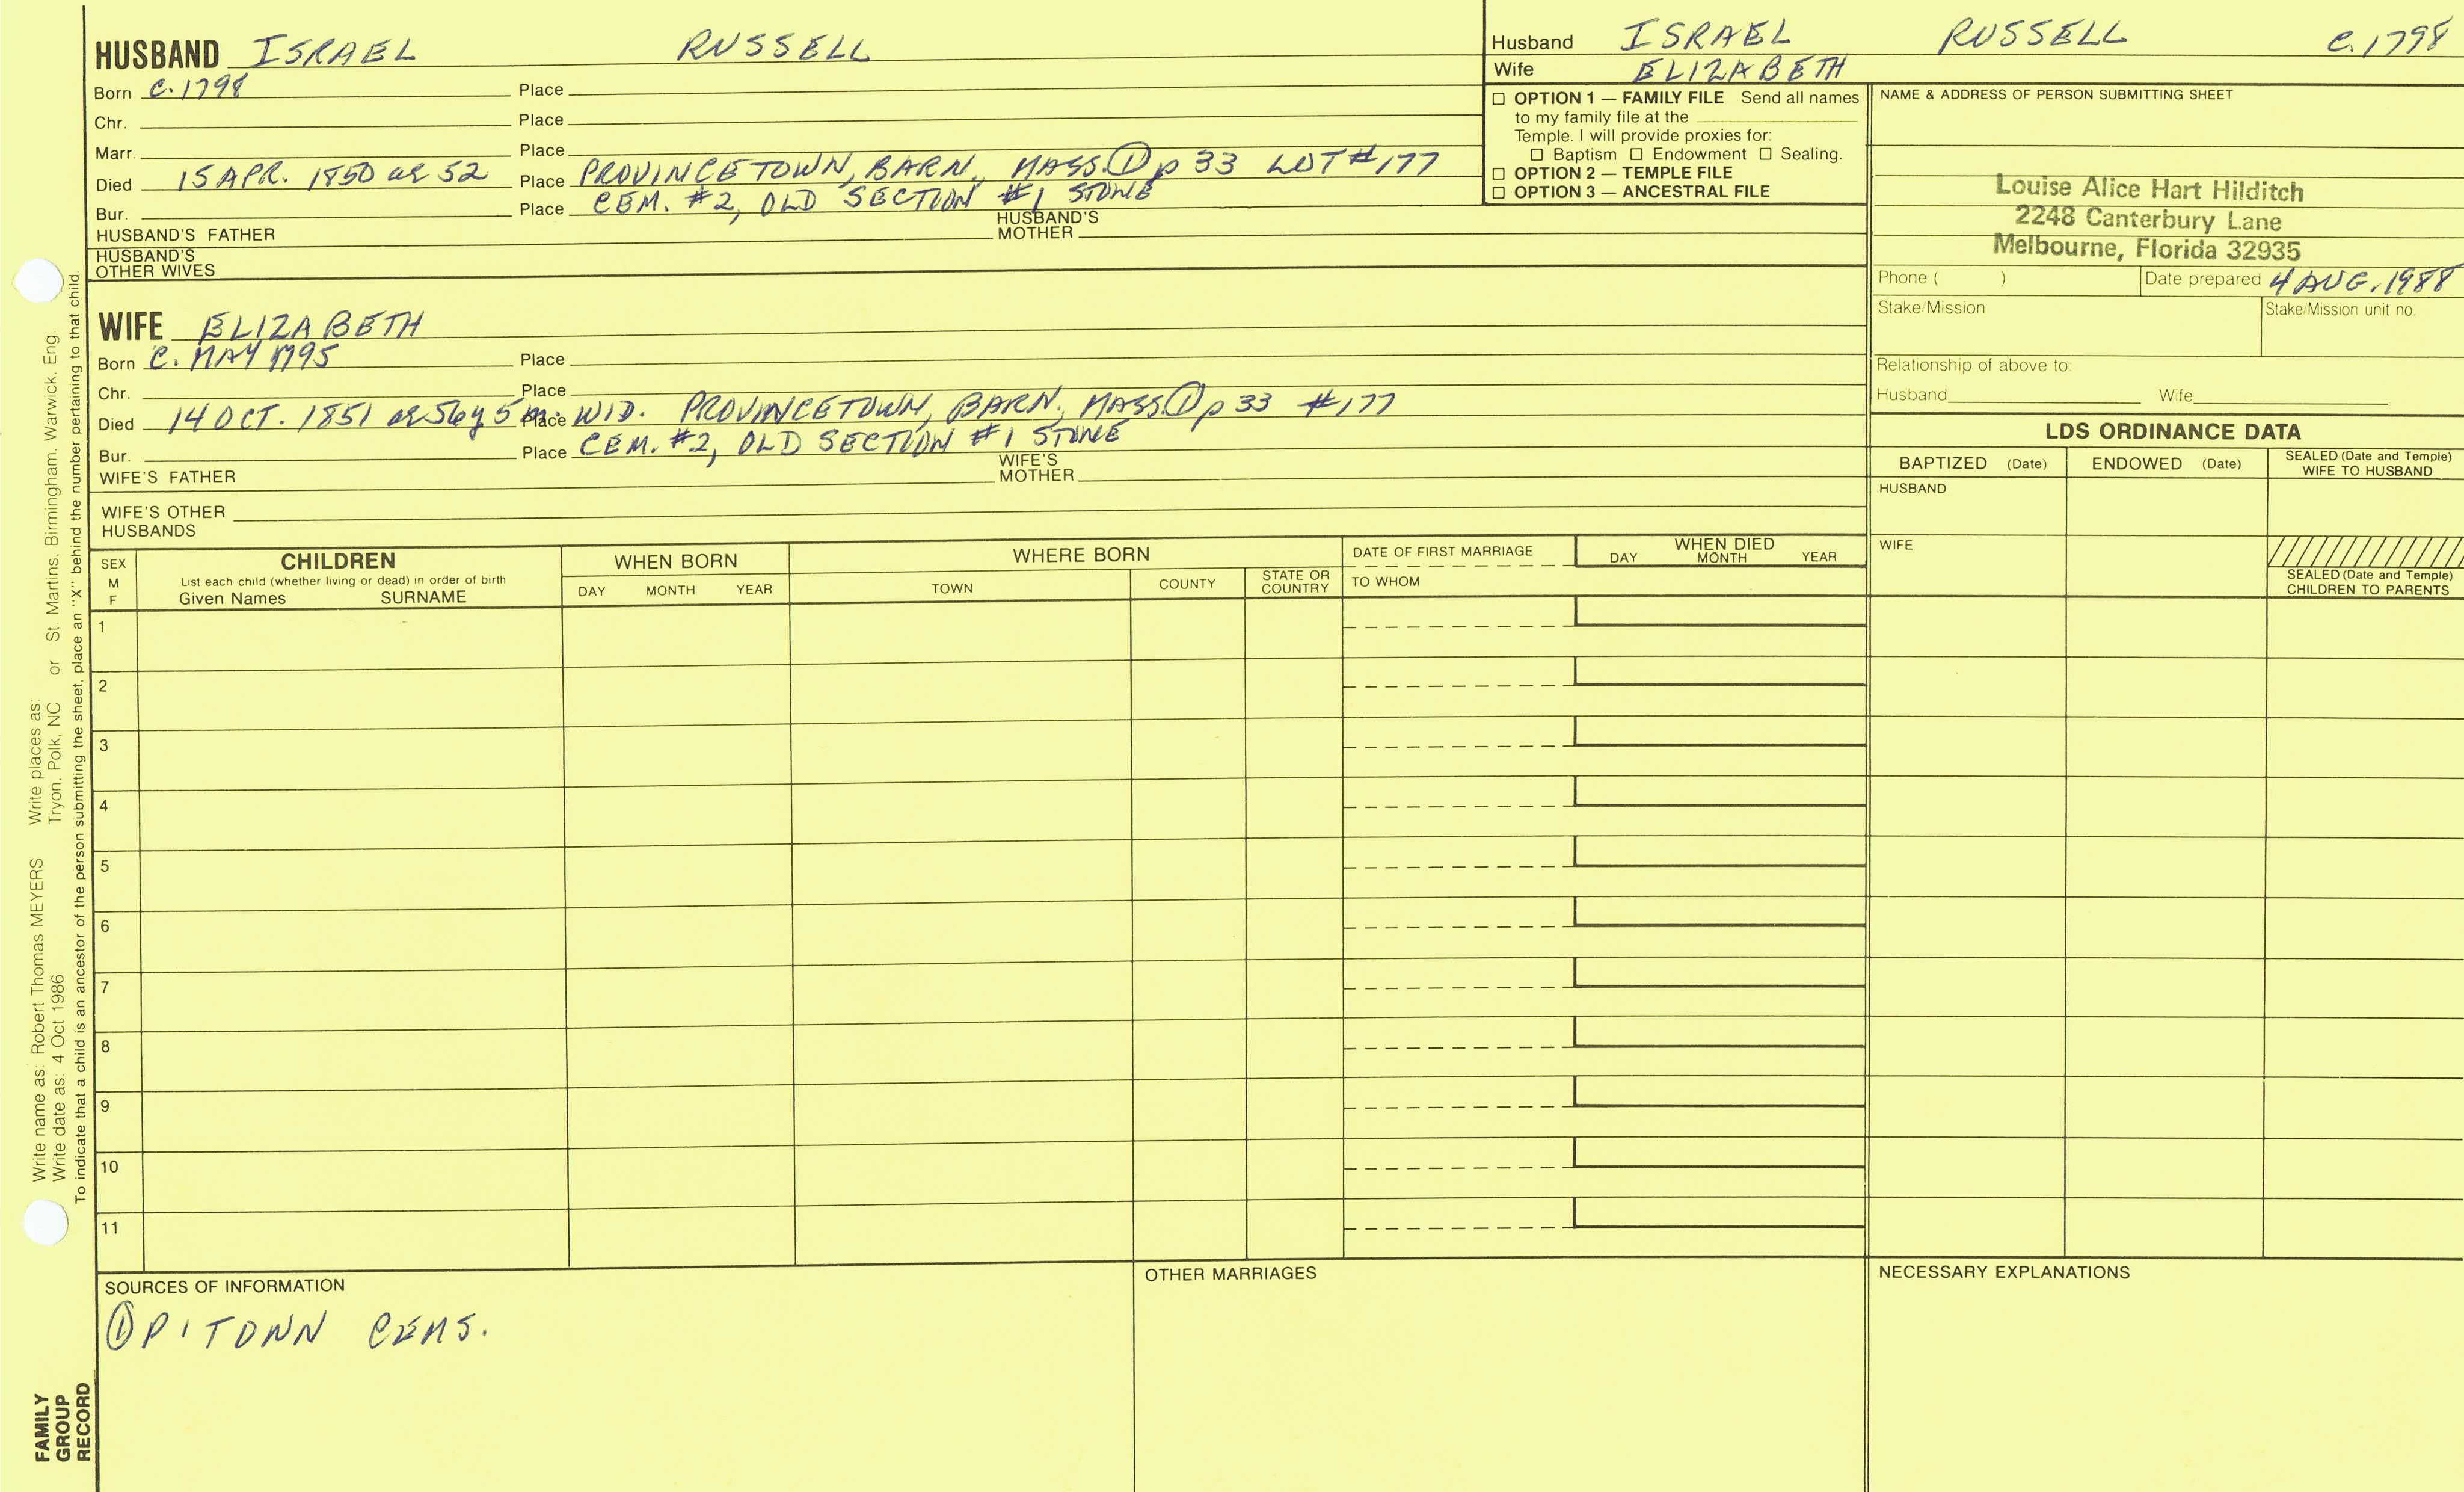 HUSBAND ISRAEL RUSSELL
Born C. 1798 Place
Chr. Place
Marr. Place
Died 15 APR. 1850 ae 52 Place PROVINCETOWN, BARN., MASS. ① p 33 LOT #177
Bur. Place CEM. #2, OLD SECTION #1 STONE
HUSBAND'S FATHER HUSBAND'S MOTHER
HUSBAND'S OTHER WIVES
WIFE ELIZABETH
Born C. MAY 1795 Place
Chr. Place
Died 14 OCT. 1851 ae 56y 5m. Place WID. PROVINCETOWN, BARN., MASS. ① p 33 #177
Bur. Place CEM. #2, OLD SECTION #1 STONE
WIFE'S FATHER WIFE'S MOTHER
WIFE'S OTHER HUSBANDS
Husband ISRAEL RUSSELL C. 1798
Wife ELIZABETH
☐ OPTION 1 — FAMILY FILE Send all names
to my family file at the
Temple. I will provide proxies for:
☐ Baptism ☐ Endowment ☐ Sealing.
☐ OPTION 2 — TEMPLE FILE
☐ OPTION 3 — ANCESTRAL FILE
NAME & ADDRESS OF PERSON SUBMITTING SHEET
Louise Alice Hart Hilditch
2248 Canterbury Lane
Melbourne, Florida 32935
Phone ( ) Date prepared 4 AUG. 1988
Stake/Mission Stake/Mission unit no.
Relationship of above to:
Husband Wife
LDS ORDINANCE DATA
BAPTIZED (Date) ENDOWED (Date) SEALED (Date and Temple) WIFE TO HUSBAND
HUSBAND
WIFE
SEALED (Date and Temple)
CHILDREN TO PARENTS
SEX M F
CHILDREN
List each child (whether living or dead) in order of birth
Given Names SURNAME
WHEN BORN
DAY MONTH YEAR
WHERE BORN
TOWN COUNTY STATE OR COUNTRY
DATE OF FIRST MARRIAGE
TO WHOM
WHEN DIED
DAY MONTH YEAR
1
2
3
4
5
6
7
8
9
10
11
SOURCES OF INFORMATION
① P'TOWN CEMS.
OTHER MARRIAGES
NECESSARY EXPLANATIONS
Write name as: Robert Thomas MEYERS Write places as:
Write date as: 4 Oct 1986 Tryon, Polk, NC or St. Martins, Birmingham, Warwick, Eng
To indicate that a child is an ancestor of the person submitting the sheet, place an "X" behind the number pertaining to that child.
FAMILY
GROUP
RECORD